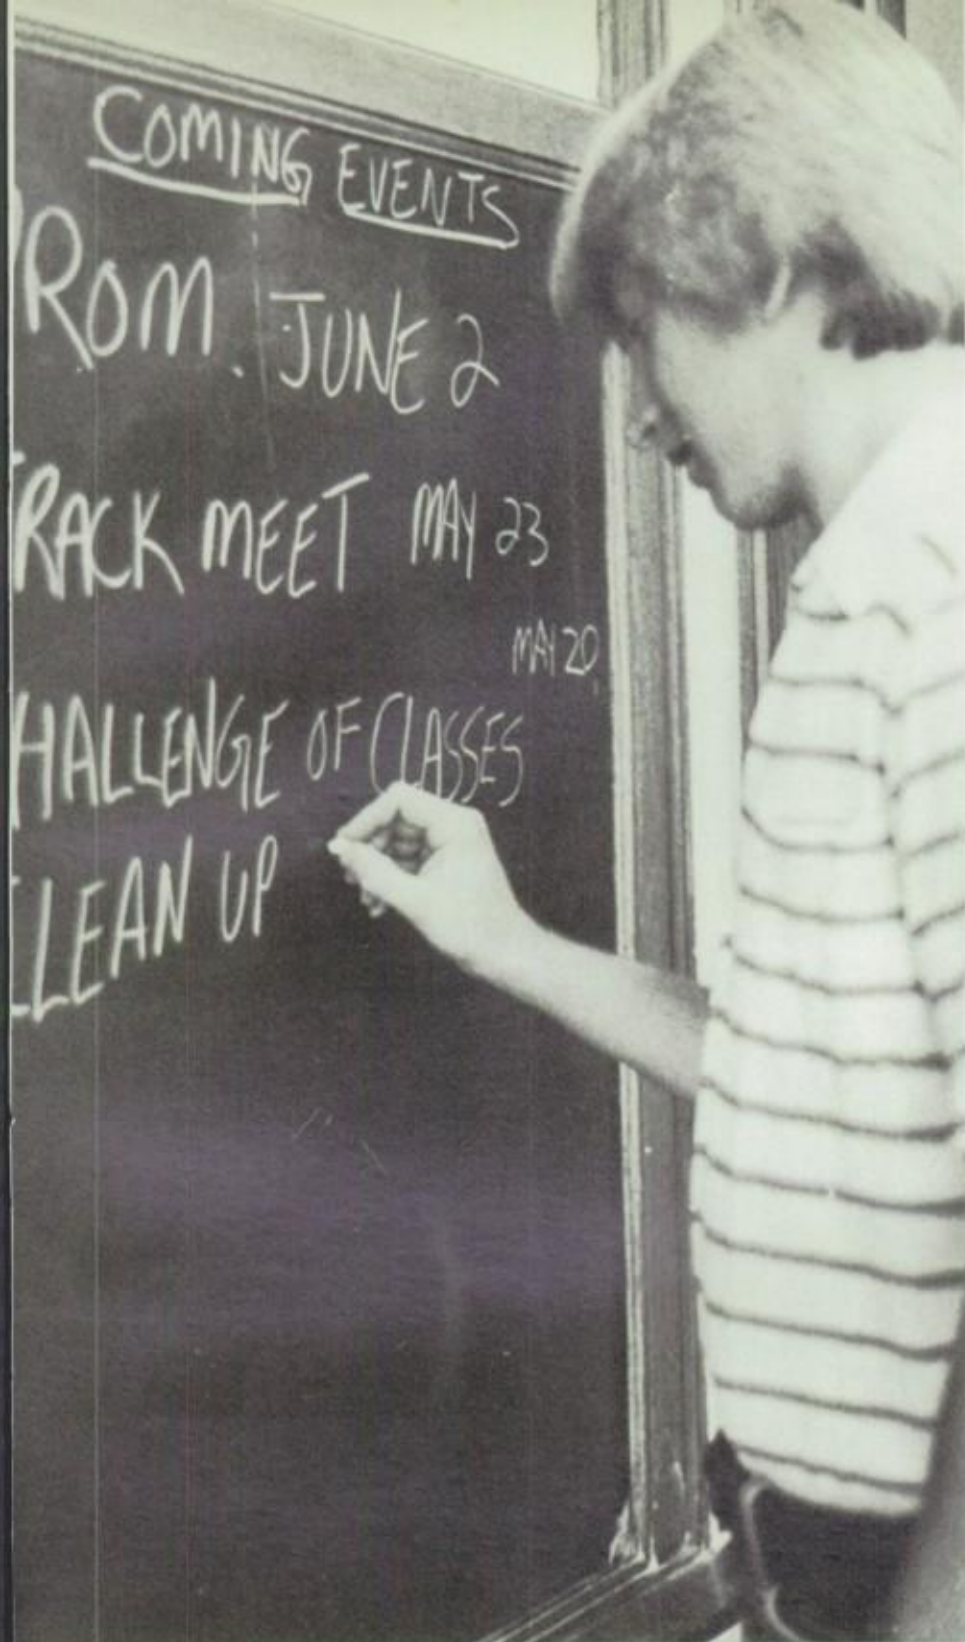 COMING EVENTS
PROM. JUNE 2
TRACK MEET MAY 23
MAY 20
CHALLENGE OF CLASSES
CLEAN UP